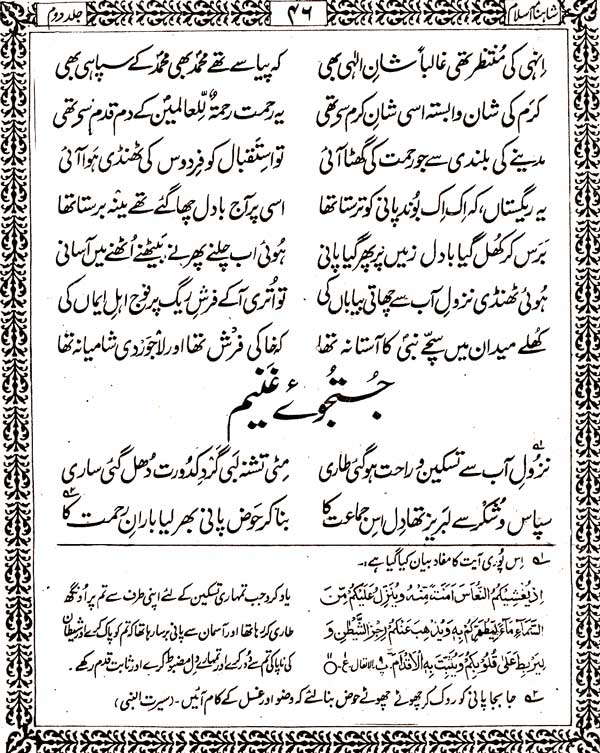 شاہنامہ اسلام ۴۶ جلد دوم
اِنہی کی مُنتظر تھی غالباً شانِ الٰہی بھی کہ پیاسے تھے محمدؐ بھی محمدؐ کے سپاہی بھی
کرم کی شان وابستہ اسی شانِ کرم سے تھی یہ رحمت رحمۃٌ لِّلعالمیں کے دم قدم سے تھی
مدینے کی بلندی سے جو رحمت کی گھٹا آئی تو استقبال کو فِردوس کی ٹھنڈی ہوا آئی
یہ ریگستاں، کہ اِک اِک بُوند پانی کو ترستا تھا اسی پر آج بادل چھا گئے تھے مینہ برستا تھا
برس کر کھُل گیا بادل زمیں پر پھر گیا پانی ہُوئی اب چلنے پھرنے بیٹھنے اُٹھنے میں آسانی
ہُوئی ٹھنڈی نزولِ آب سے چھاتی بیاباں کی تو اُتری آکے فرشِ ریگ پر فوج اہلِ ایماں کی
کھُلے میدان میں سچّے نبیؐ کا آستانہ تھا کفِ خاکی فرش تھا اور لاجوردی شامیانہ تھا
جُستجوئے غنیم
نزولِ آب سے تسکین و راحت ہو گئی طاری مِٹی تشنہ لبی گردِ کدُورت دُھل گئی ساری
سپاس و شُکر سے لبریز تھا دل اس جماعت کا بنا کر حَوض پانی بھر لیا بارانِ رحمت کا
؂۱ اس پُوری آیت کا مفاد بیان کیا گیا ہے:۔
اِذْ یُغَشِّیْکُمُ النُّعَاسَ اَمَنَةً مِّنْهُ وَیُنَزِّلُ عَلَیْکُمْ مِّنَ یاد کرو جب تمہاری تسکین کے لئے اپنی طرف سے تم پر اُونگھ
السَّمَآءِ مَآءً لِّیُطَهِّرَکُمْ بِهٖ وَیُذْهِبَ عَنْکُمْ رِجْزَ الشَّیْطٰنِ وَ طاری کر رہا تھا اور آسمان سے پانی برسا رہا تھا کہ تم کو پاک کرے اور شیطان
لِیَرْبِطَ عَلٰی قُلُوْبِکُمْ وَیُثَبِّتَ بِهِ الْاَقْدَامَ۔ پ الانفال ع کی ناپاکی تم سے دُور کرے اور تمہارے دل مضبوط کرے اور ثابت قدم رکھے۔
؂۲ جا بجا پانی کو روک کر چھوٹے چھوٹے حوض بنا لئے کہ وضو اور غسل کے کام آئیں۔ (سیرت النبی)